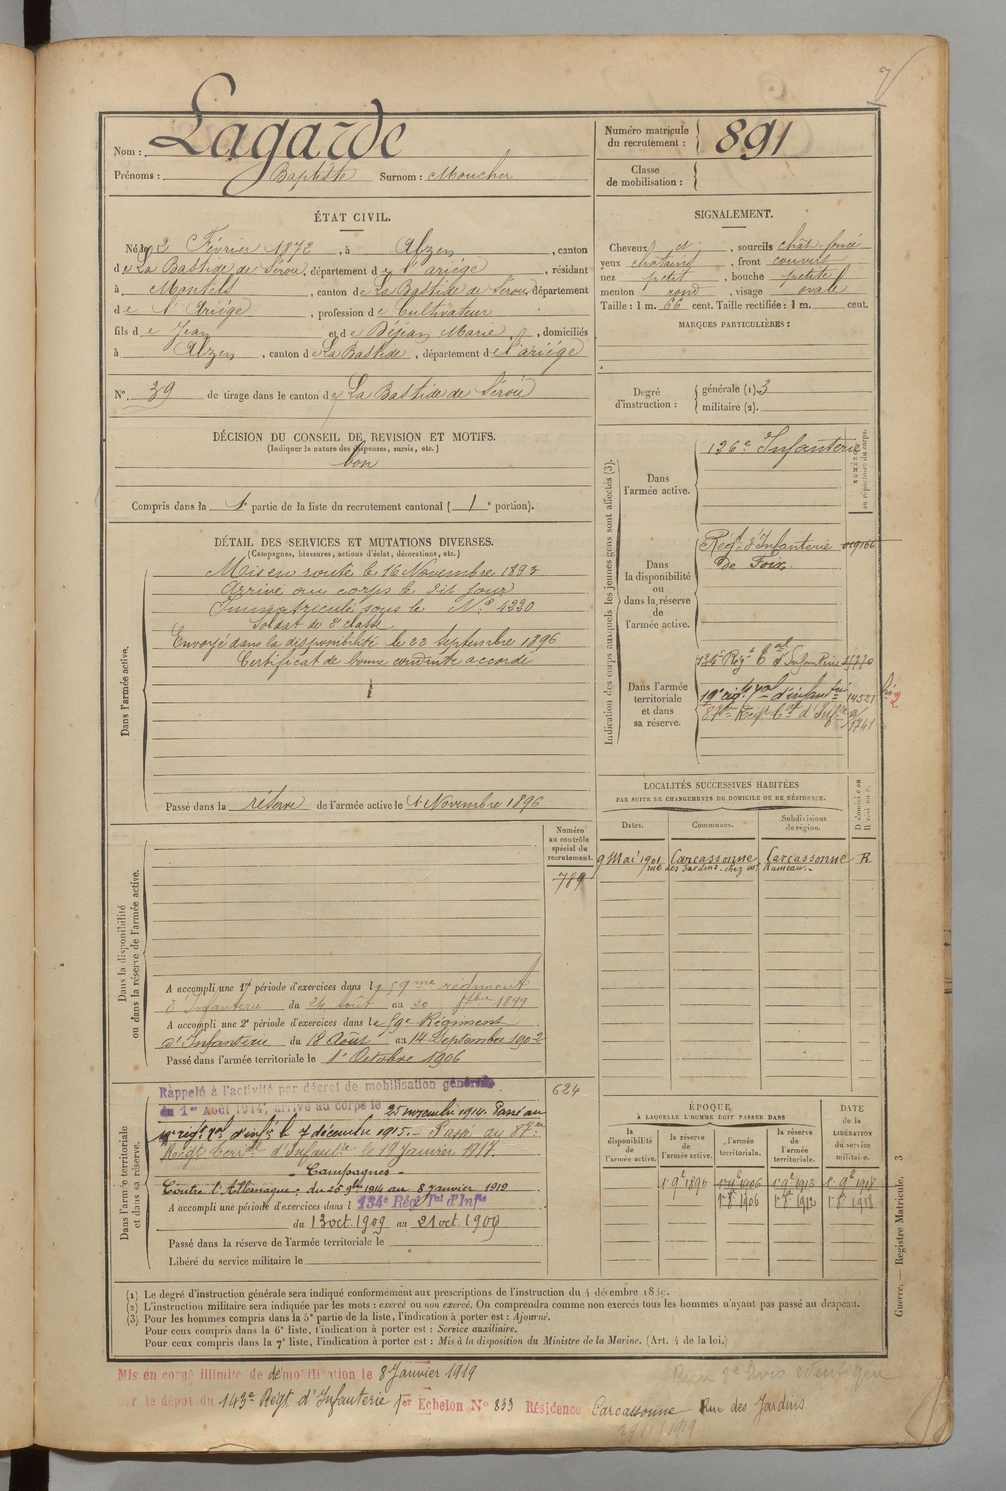 7
Nom : Lagarde
Prénoms : Baptiste Surnom : Moucher
Numéro matricule du recrutement : 891
Classe de mobilisation :
ÉTAT CIVIL.
Né le 2 Février 1872, à Alzen, canton
de La Bastide de Sérou, département de l'ariége, résidant
à Montels, canton de La Bastide de Sérou, département
de l'Ariége, profession de Cultivateur
fils de Jean et de Béjean Marie, domiciliés
à Alzen, canton de La Bastide, département de l'ariége
N° 39 de tirage dans le canton de La Bastide de Sérou
SIGNALEMENT.
Cheveux et , sourcils chât. foncé
yeux chatains, front couvert
nez petit, bouche petite
menton rond, visage ovale
Taille : 1 m. 66 cent. Taille rectifiée : 1 m. cent.
MARQUES PARTICULIÈRES :
Degré d'instruction : générale (1). 3
militaire (2).
DÉCISION DU CONSEIL DE REVISION ET MOTIFS.
(Indiquer la nature des dispenses, sursis, etc.)
bon
Compris dans la 1e partie de la liste du recrutement cantonal (1e portion).
DÉTAIL DES SERVICES ET MUTATIONS DIVERSES.
(Campagnes, blessures, actions d'éclat, décorations, etc.)
Dans l'armée active.
Mis en route le 16 Novembre 1893
Arrivé au corps le dit jour
Immatriculé sous le N° 4220
Soldat de 2e classe
Envoyé dans la disponibilité le 22 Septembre 1896
Certificat de bonne conduite accordé
Passé dans la réserve de l'armée active le 1 Novembre 1896
Indication des corps auxquels les jeunes gens sont affectés (3).
NUMÉROS au répertoire du corps.
Dans l'armée active.
126e Infanterie
Dans la disponibilité ou dans la réserve de l'armée active.
Régt d'Infanterie
de Foix
Dans l'armée territoriale et dans sa réserve.
134e Régt Tal d'Infanterie
19e rigt Tal d'infantie 14521
87me Régt Tal d'Infie 1741
LOCALITÉS SUCCESSIVES HABITÉES
PAR SUITE DE CHANGEMENTS DE DOMICILE OU DE RÉSIDENCE.
Dates. Communes. Subdivisions de région. Domicile ou Résidence.
9 Mai 1901 Carcassonne Carcassonne R
rue des Jardins - chez Mr Rumeau.
Dans la disponibilité ou dans la réserve de l'armée active.
Numéro au contrôle spécial du recrutement.
789
A accompli une 1re période d'exercices dans le 59me régiment
d'Infanterie du 24 Août au 20 7bre 1899
A accompli une 2e période d'exercices dans le 59e Régiment
d'Infanterie du 18 Août au 14 Septembre 1902
Passé dans l'armée territoriale le 1er Octobre 1906
Dans l'armée territoriale et dans sa réserve.
624
Rappelé à l'activité par décret de mobilisation générale
du 1er Août 1914, arrivé au corps le 25 novembre 1914. Passé au
19e rigt Tal d'infie le 7 décembre 1915. - Passé au 87me
Régt Terral d'Infantie le 19 Janvier 1917.
- Campagnes -
Contre l'Allemagne : du 25 9bre 1914 au 8 Janvier 1919
A accompli une période d'exercices dans l 134e Rég Tal d'Infie
du 13 oct. 1909 au 21 oct. 1909
Passé dans la réserve de l'armée territoriale le
Libéré du service militaire le
ÉPOQUE
À LAQUELLE L'HOMME DOIT PASSER DANS
la disponibilité de l'armée active. la réserve de l'armée active. l'armée territoriale. la réserve de l'armée territoriale. DATE de la LIBÉRATION du service militaire.
1r 9b 1896 1r 9b 1906 1r 9b 1912 1r 9b 1918
1r 8b 1906 1r 8b 1912 1r 8b 1918
(1) Le degré d'instruction générale sera indiqué conformément aux prescriptions de l'instruction du 4 décembre 1889.
(2) L'instruction militaire sera indiquée par les mots : exercé ou non exercé. On comprendra comme non exercés tous les hommes n'ayant pas passé au drapeau.
(3) Pour les hommes compris dans la 5e partie de la liste, l'indication à porter est : Ajourné.
Pour ceux compris dans la 6e liste, l'indication à porter est : Service auxiliaire.
Pour ceux compris dans la 7e liste, l'indication à porter est : Mis à la disposition du Ministre de la Marine. (Art. 4 de la loi.)
Guerre. — Registre Matricule. 3
Mis en congé illimité de démobilisation le 8 Janvier 1919
par le dépôt du 143e Régt d'Infanterie 1er Échelon N° 833 Résidence Carcassonne Rue des Jardins